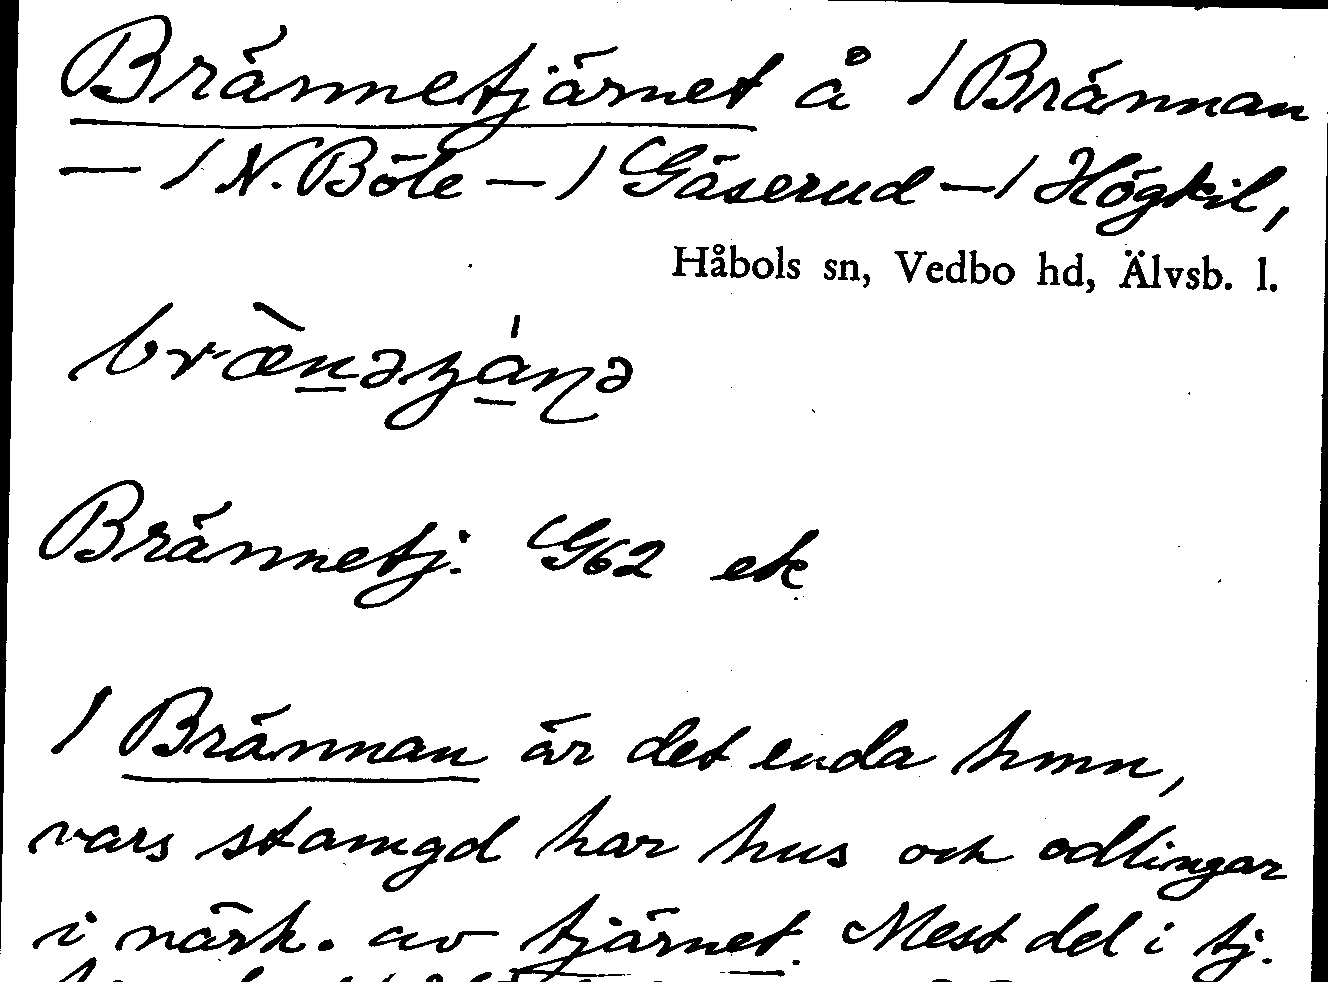 Brännetjärnet å / Brännan
— / N. Böle — / Gäserud — / Högkil,
Håbols sn, Vedbo hd, Älvsb. l.
Brännetj. G62 ek
/ Brännan är det enda hmn,
vars stamgd har hus och odlingar
i närh. av tjärnet. Mest del i tj.